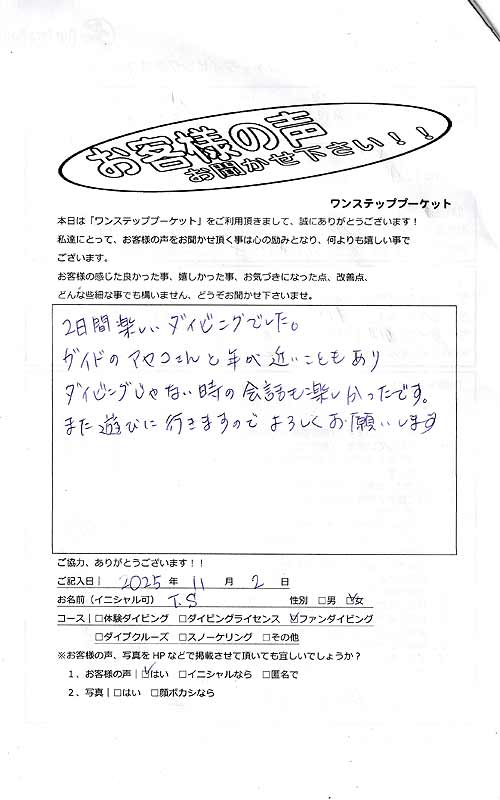 お客様の声
お聞かせ下さい！！
ワンステッププーケット
本日は「ワンステッププーケット」をご利用頂きまして、誠にありがとうございます！
私達にとって、お客様の声をお聞かせ頂く事は心の励みとなり、何よりも嬉しい事で
ございます。
お客様の感じた良かった事、嬉しかった事、お気づきになった点、改善点、
どんな些細な事でも構いません、どうぞお聞かせ下さいませ。
2日間楽しいダイビングでした。
ガイドのアヤコさんと年が近いこともあり
ダイビングじゃない時の会話も楽しかったです。
また遊びに行きますのでよろしくお願いします
ご協力、ありがとうございます！！
ご記入日｜ 2025 年 11 月 2 日
お名前（イニシャル可） T.S 性別 □男 ☑女
コース｜□体験ダイビング □ダイビングライセンス ☑ファンダイビング
□ダイブクルーズ □スノーケリング □その他
※お客様の声、写真をHPなどで掲載させて頂いても宜しいでしょうか？
1．お客様の声｜☑はい □イニシャルなら □匿名で
2．写真｜□はい □顔ボカシなら